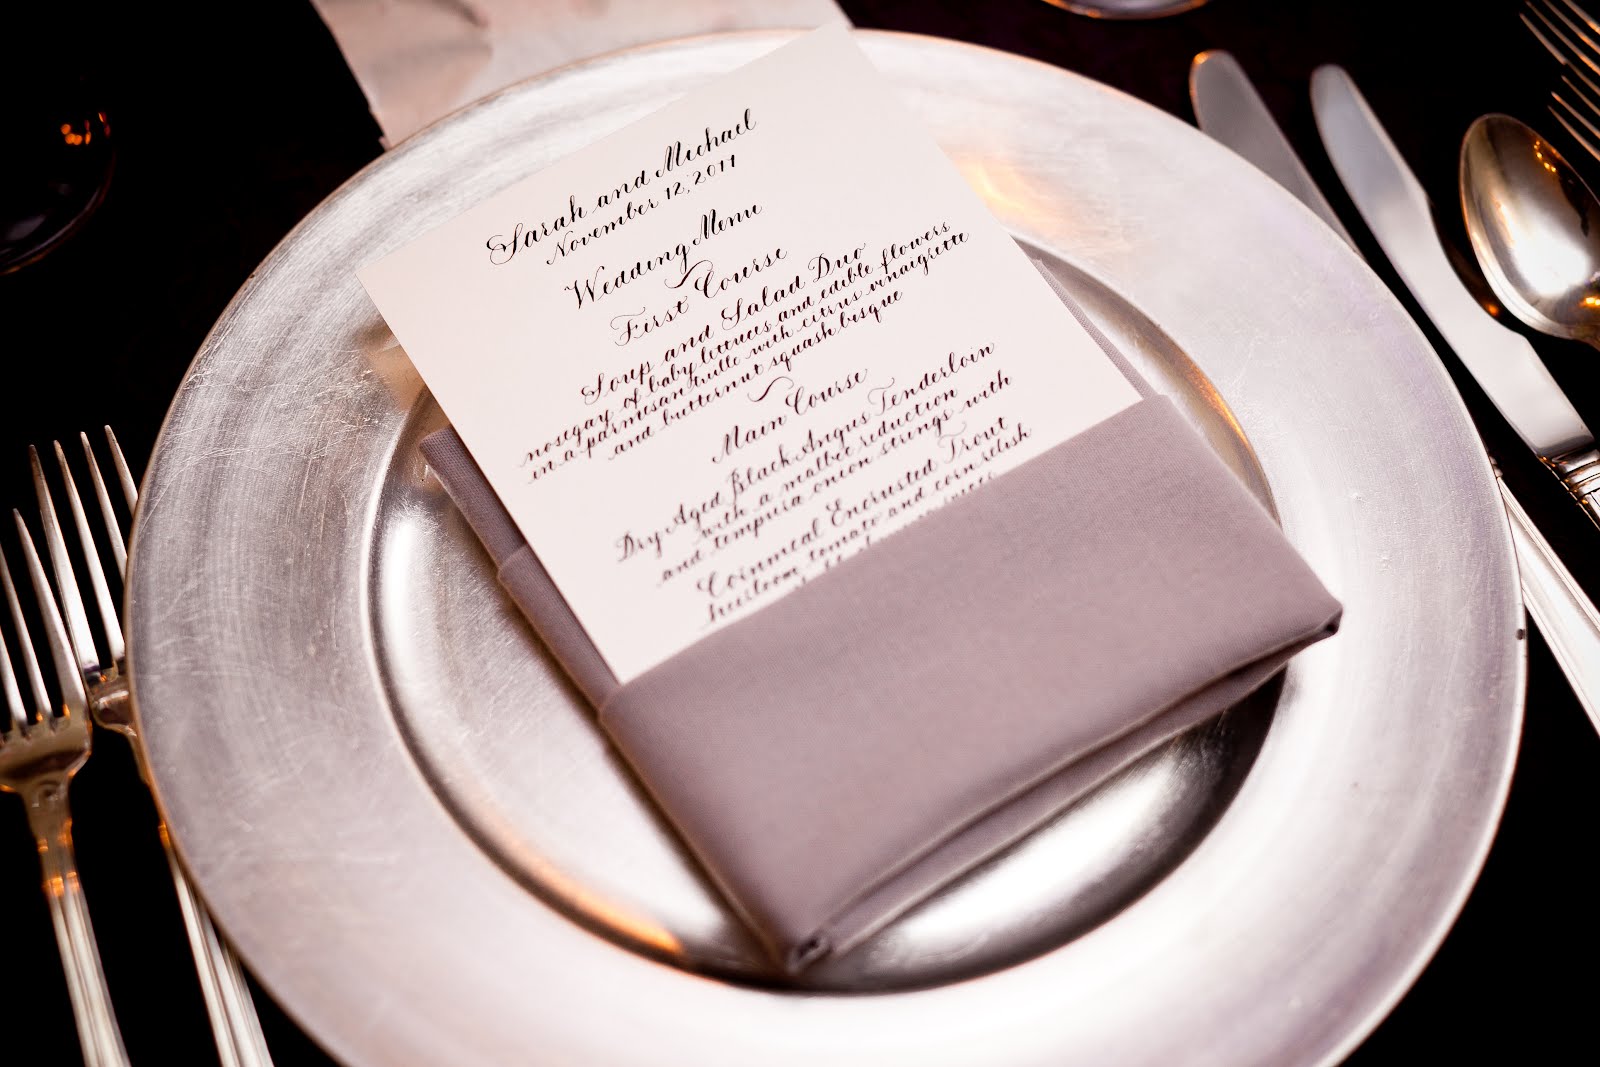 Sarah and Michael
November 12, 2011
Wedding Menu
First Course
Soup and Salad Duo
nosegay of baby lettuces and edible flowers
in a parmesan tuile with citrus vinaigrette
and butternut squash bisque
Main Course
Dry Aged Black Angus Tenderloin
with a malbec reduction
and tempura onion strings with
Cornmeal Encrusted Trout
heirloom tomato and corn relish